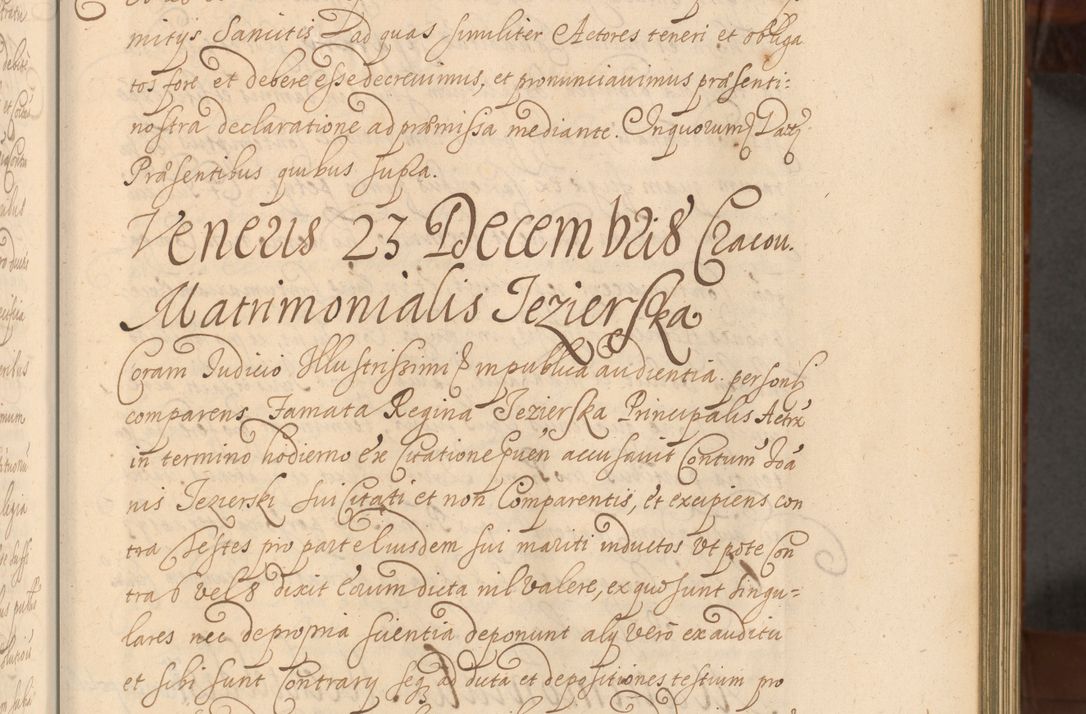 mitys Sancitis Dad quas similiter Actores teneri et obliga
tos fore et debere esse decrevimus, et pronunciavimus præsenti:
nostra declaratione ad præmissa mediante. Inquorum
Præsentibus quibus supra.
Veneris 23 Decembris Cracou.
Matrimonialis Jezierska
Coram Judicio Illustrissimi in publica audientia personl
comparens Famata Regina Jezierska Principalis Actrx
in termino hodierno ex Citatione accusavit Contum Joā
nis Jezierski sui Citati et non Comparentis, et excipiens con
tra Testes pro parte Eiusdem sui mariti inductos vt pote Con
tra 6 vel 8 dixit Eorum dicta nil valere, ex quo sunt singu=
lares nec de propria scientia deponunt aly vero ex auditu
et sibi sunt Contrary ad dicta et depositiones testium pro